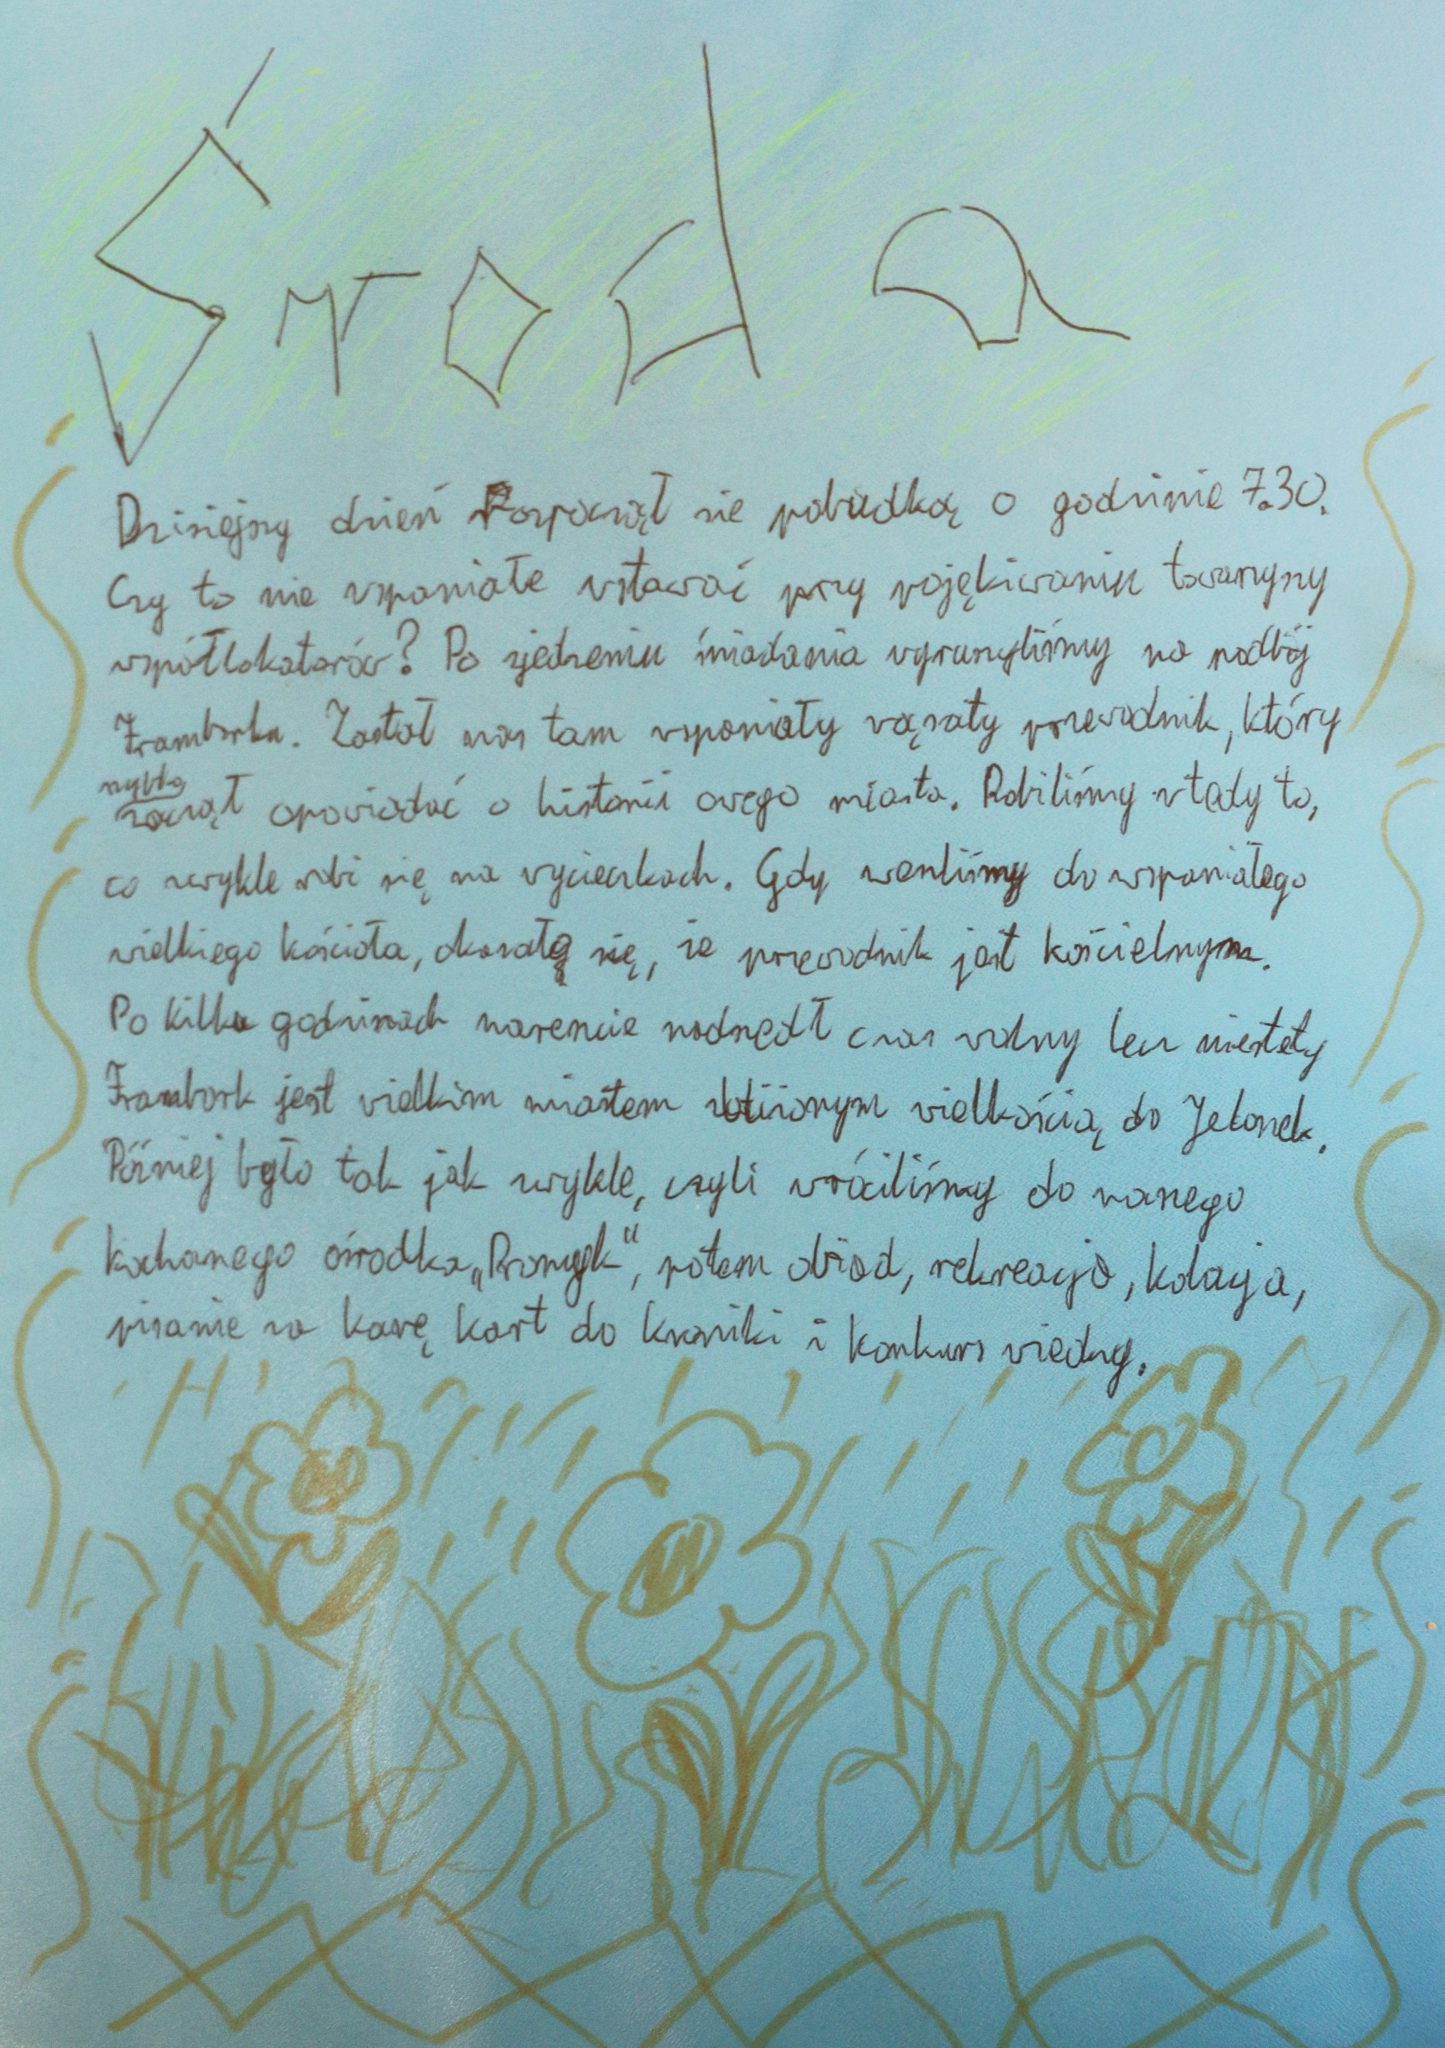 Środa
Dzisiejszy dzień Rozpoczął się pobudką o godzinie 7.30.
Czy to nie wspaniałe wstawać przy pojękiwaniu towarzyszy
współlokatorów? Po zjedzeniu śniadania wyruszyliśmy na podbój
Fromborka. Zastał nas tam wspaniały wąsaty przewodnik, który
szybko
zaczął opowiadać o historii owego miasta. Robiliśmy wtedy to,
co zwykle robi się na wycieczkach. Gdy weszliśmy do wspaniałego
wielkiego kościoła, okazało się, że przewodnik jest kościelnym.
Po kilku godzinach nareszcie nadszedł czas wolny lecz niestety
Frombork jest wielkim miastem zbliżonym wielkością do Jelonek.
Później było tak jak zwykle, czyli wróciliśmy do naszego
kochanego ośrodka „Promyk", potem obiad, rekreacja, kolacja,
pisanie za karę kart do kroniki i konkurs wiedzy.